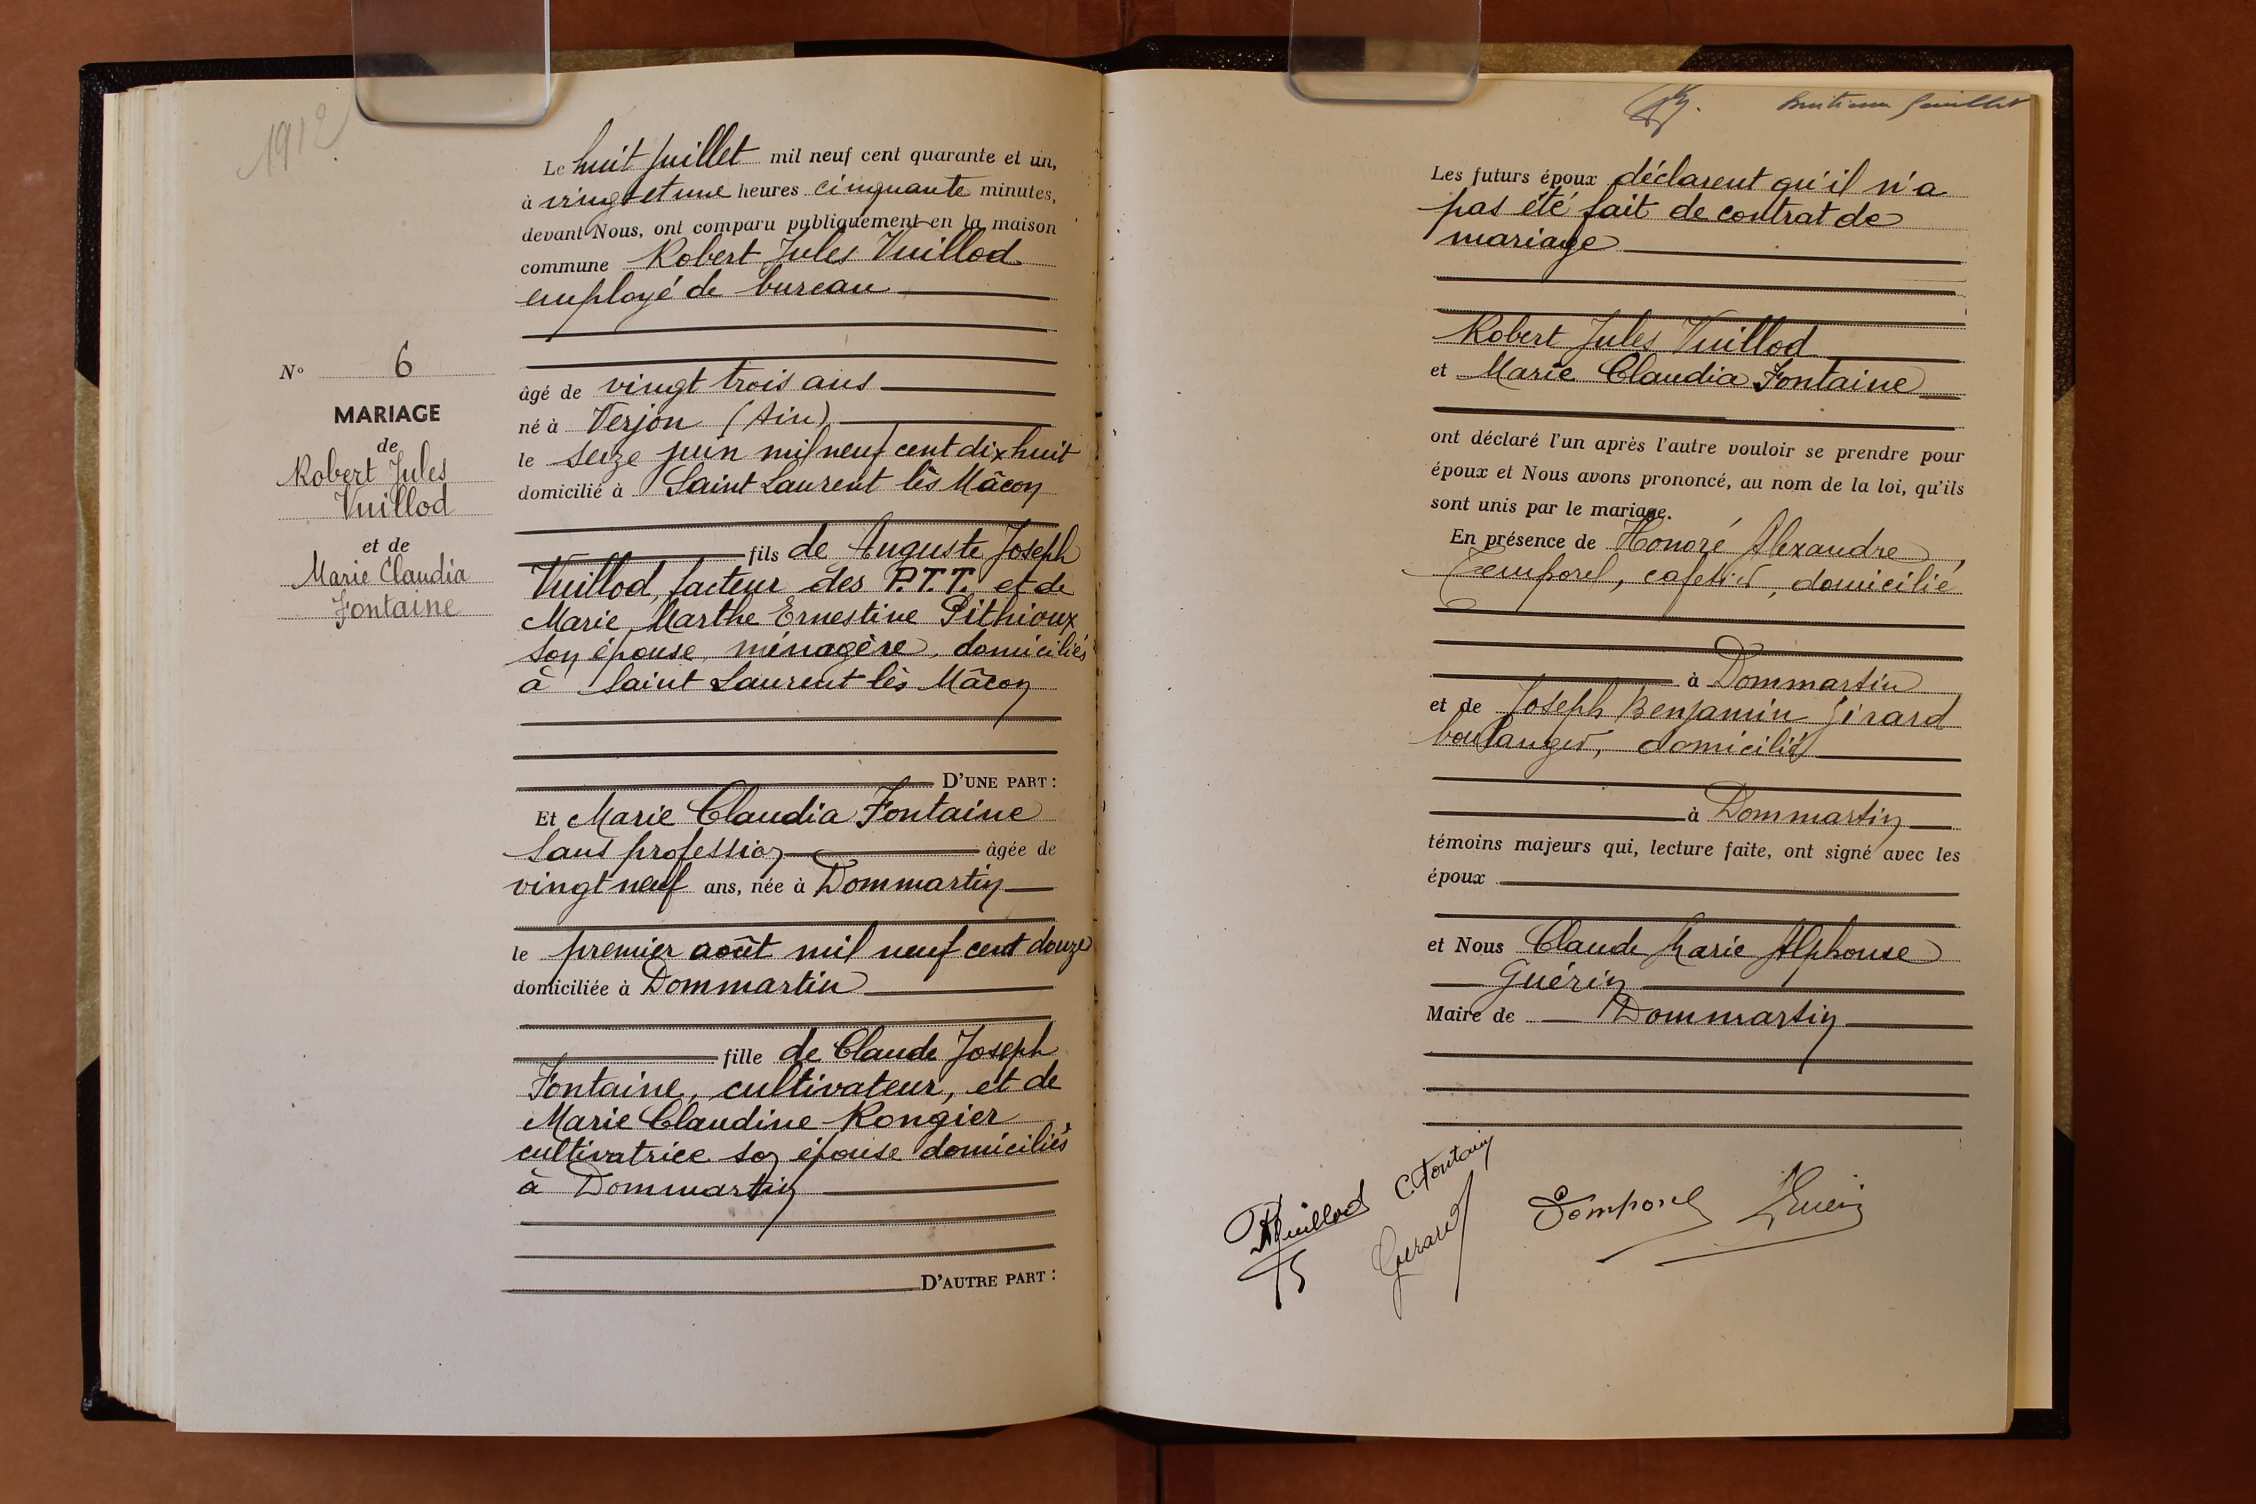 1912
Le huit juillet mil neuf cent quarante et un,
à vingt et une heures cinquante minutes,
devant Nous, ont comparu publiquement en la maison
commune Robert Jules Vuillod
employé de bureau
âgé de vingt trois ans
né à Verjon (Ain)
le seize juin mil neuf cent dix huit
domicilié à Saint Laurent lès Mâcon
fils de Auguste Joseph
Vuillod, facteur des P.T.T. et de
Marie Marthe Ernestine Pithioux
son épouse, ménagère, domiciliés
à Saint Laurent lès Mâcon
D'UNE PART :
Et Marie Claudia Fontaine
sans profession âgée de
vingt neuf ans, née à Dommartin
le premier août mil neuf cent douze
domiciliée à Dommartin
fille de Claude Joseph
Fontaine, cultivateur, et de
Marie Claudine Rongier
cultivatrice son épouse domiciliés
à Dommartin
D'AUTRE PART :
N° 6
MARIAGE
de
Robert Jules
Vuillod
et de
Marie Claudia
Fontaine
Les futurs époux déclarent qu'il n'a
pas été fait de contrat de
mariage
Robert Jules Vuillod
et Marie Claudia Fontaine
ont déclaré l'un après l'autre vouloir se prendre pour
époux et Nous avons prononcé, au nom de la loi, qu'ils
sont unis par le mariage.
En présence de Honoré Alexandre
Temporel, cafetier, domicilié
à Dommartin
et de Joseph Benjamin Girard
boulanger, domicilié
à Dommartin
témoins majeurs qui, lecture faite, ont signé avec les
époux
et Nous Claude Marie Alphonse
Guérin
Maire de Dommartin
RVuillod C. Fontaine
Gerard Temporel Guérin